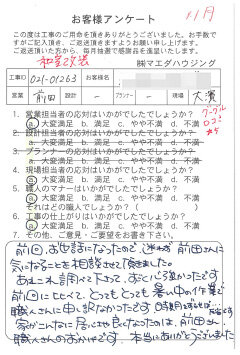 11月
お客様アンケート
この度は工事のご用命を頂きありがとうございました。お手数で
すがご記入頂き、ご返送頂きますようお願い申し上げます。
ご返送頂いた方から、毎月抽選で感謝品を進呈いたします。
和室改装
㈱マエダハウジング
工事ID 021-01263 お客様名
営業 前田 設計 － プランナー － 現場 大濱
1. 営業担当者の応対はいかがでしたでしょうか？
ⓐ大変満足 b. 満足 c. やや不満 d. 不満
2. 設計担当者の応対はいかがでしたでしょうか？
a. 大変満足 b. 満足 c. やや不満 d. 不満
3. プランナーの応対はいかがでしたでしょうか？
a. 大変満足 b. 満足 c. やや不満 d. 不満
4. 現場担当者の応対はいかがでしたでしょうか？
ⓐ大変満足 b. 満足 c. やや不満 d. 不満
5. 職人のマナーはいかがでしたでしょうか？
ⓐ大変満足 b. 満足 c. やや不満 d. 不満
それはどの職人でしょうか？（ ）
6. 工事の仕上がりはいかがでしたでしょうか？
ⓐ大変満足 b. 満足 c. やや不満 d. 不満
7. その他、ご意見・ご要望をお書き下さい。
前回お世話になったので、迷わず前田さんに
気になることを相談させて頂きました。
あれこれ調べて下さって、おどろき
前回に比べて、とってもとっても暑い中の作業で
職人さんに申し訳なかったです
家がこんなに居心地が良くなったのは、前田さん
職人さんのおかげです。本当にありがとうございました